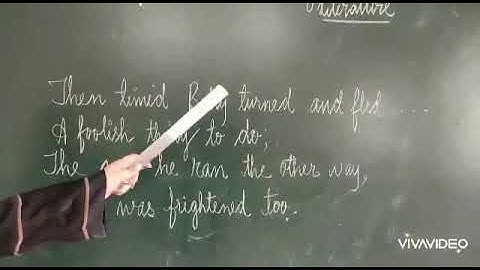 Literature
Then timid turned and fled ....
A foolish thing to do;
The he ran the other way,
was frightened too.
VIVAVIDEO